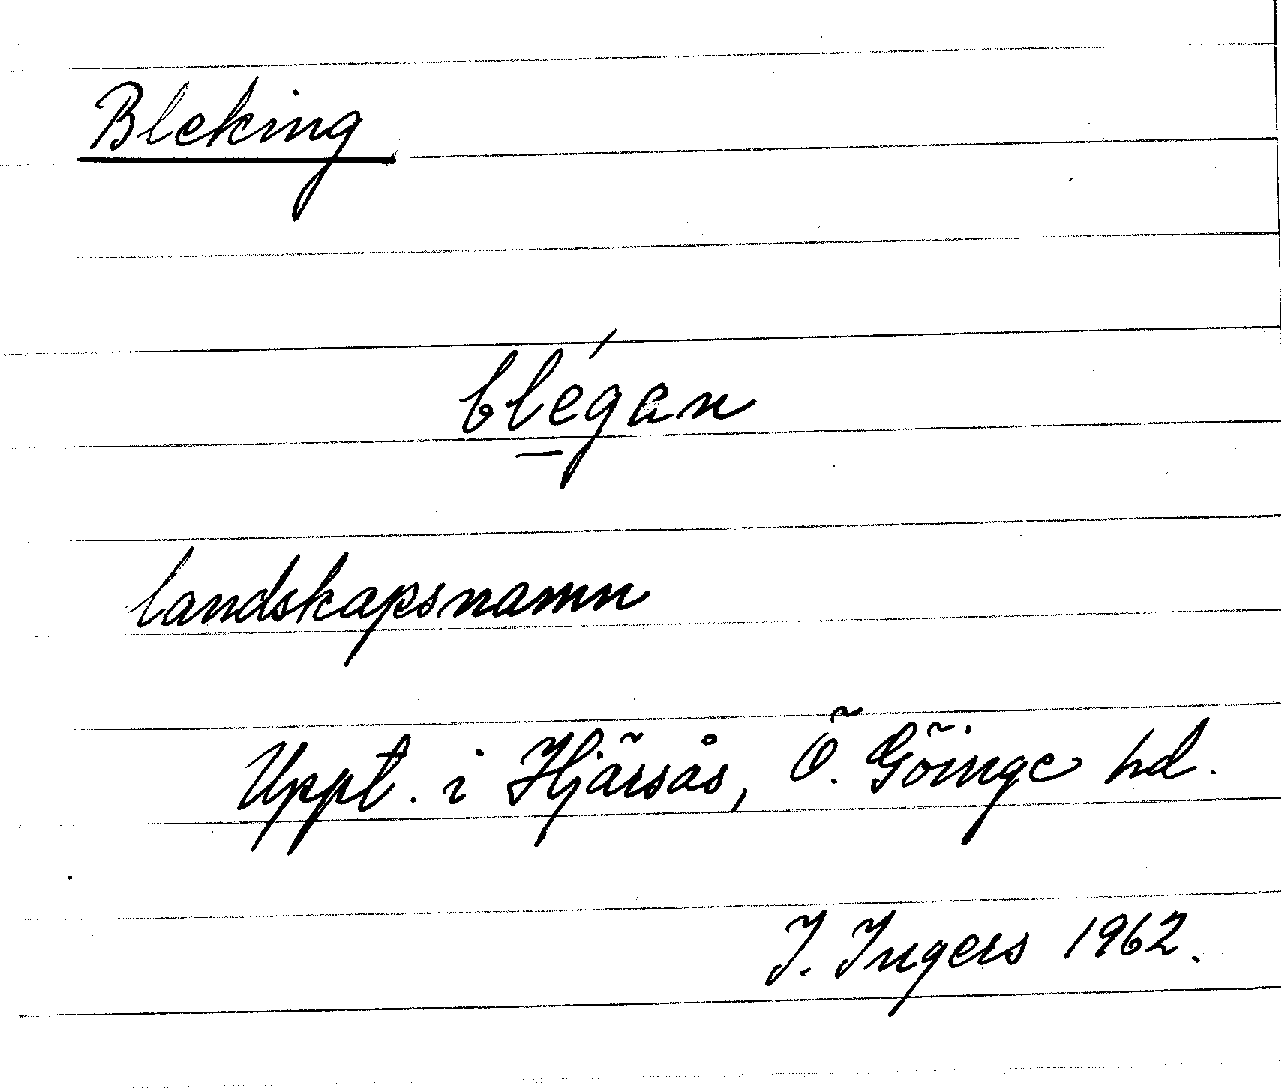 Bleking
blégan
landskapsnamn
Uppt. i Hjärsås, Ö. Göinge hd.
I. Ingers 1962.